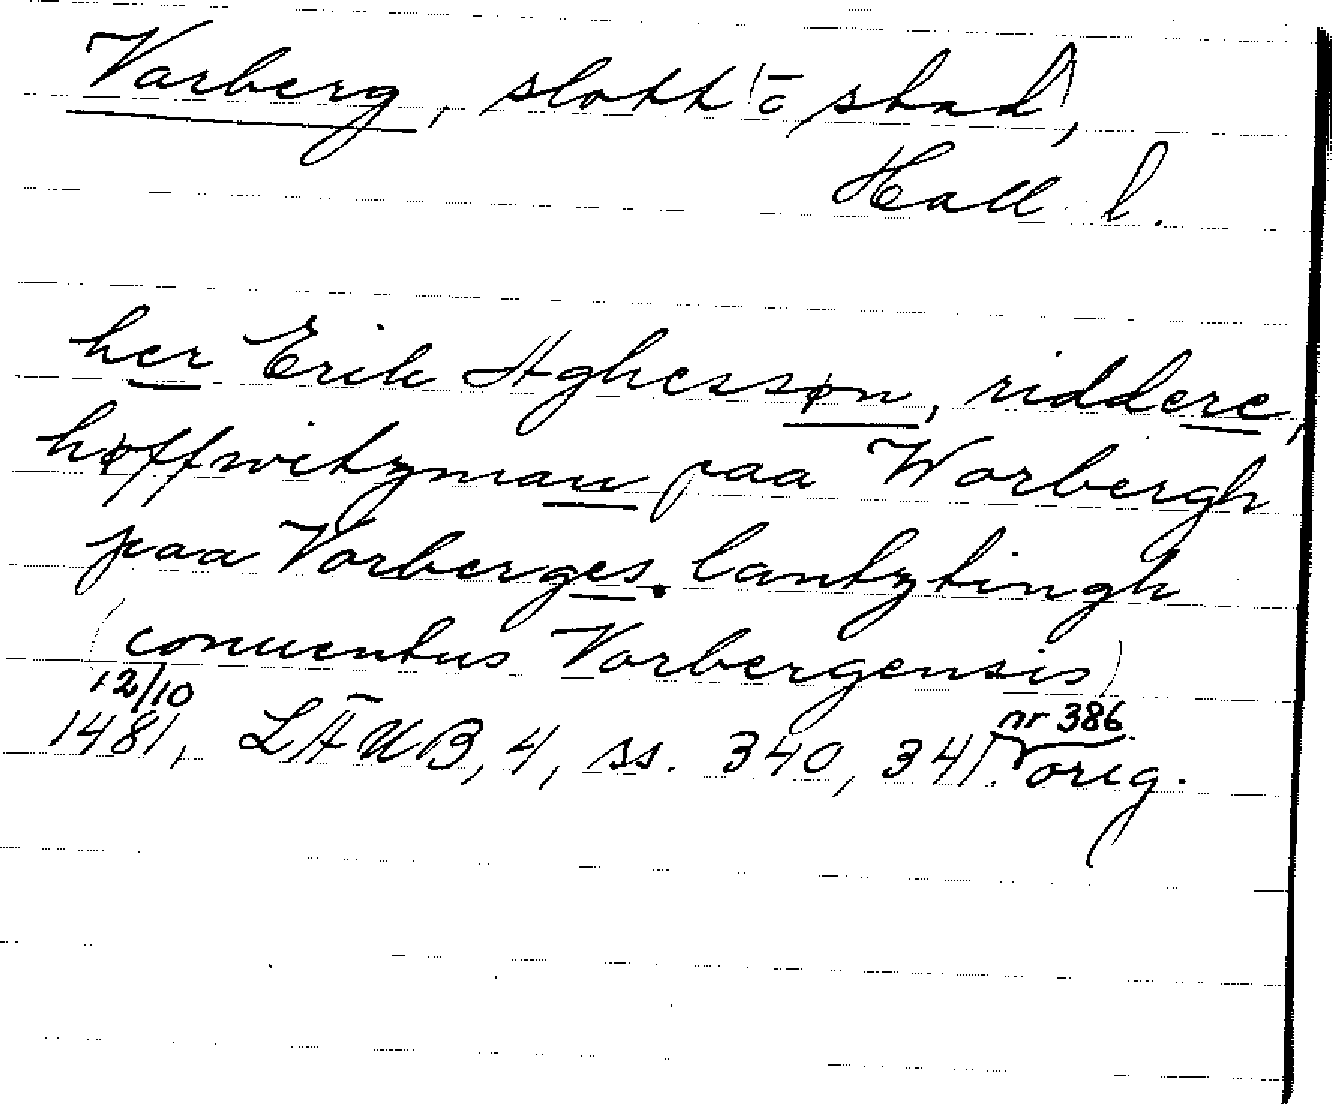 Varberg, slott (o stad),
Hall l.
her Erik Aghessøn, riddere,
høffwitzman paa Worbergh
paa Vorberges. lantztingh
(conuentus Vorbergensis)
12/10
1481, LÄUB, 4, ss. 340, 341. nr 386 orig.